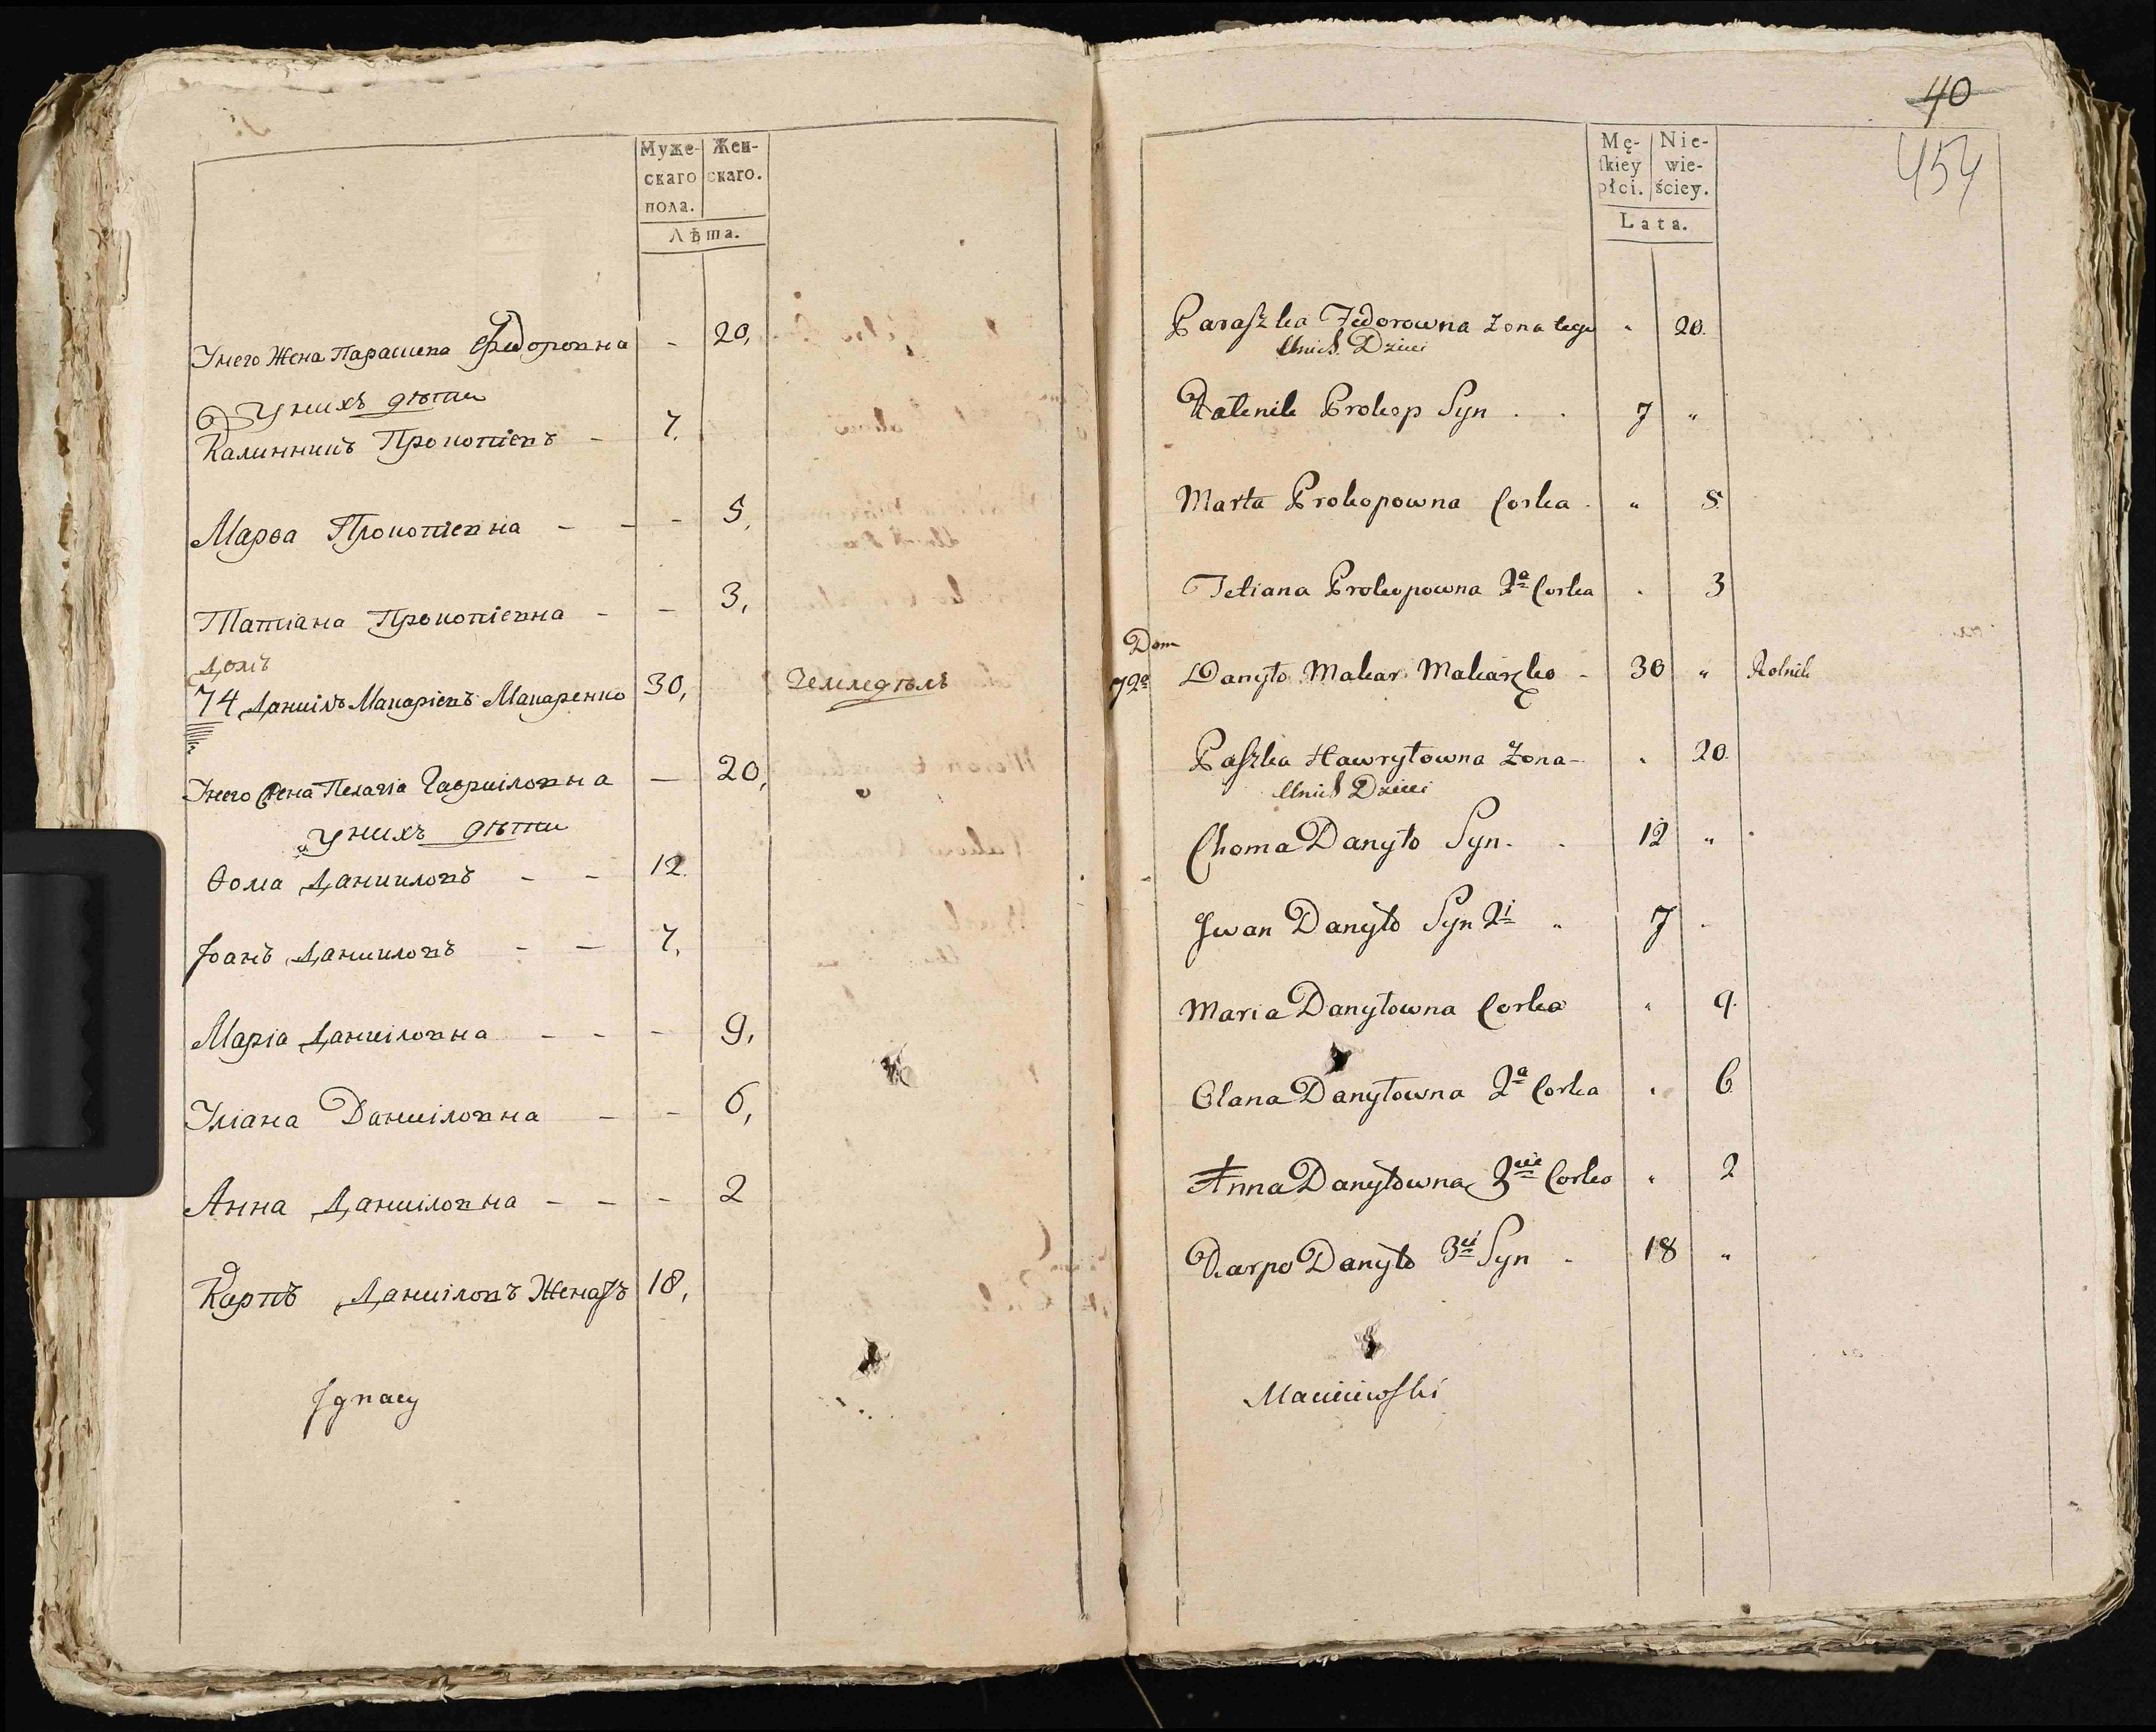 Муже-
скаго
пола.
Жен-
скаго.
Лѣта.
Унего Жена Параскева Федоровна - 20,
Унихъ дѣти
Калинникъ Прокопіевъ - 7.
Марѳа Прокопіевна - - - 5,
Татіана Прокопіевна - - 3,
Домъ
74 Даніилъ Макаріевъ Макаренко 30, Земледѣлъ
Унего Жена Пелагія Гавріиловна - 20,
Унихъ дѣти
Ѳома Данииловъ - - 12.
Іоанъ Данииловъ - - 7,
Маріа Даніиловна - - - 9,
Уліана Даніиловна - - 6,
Анна Даніиловна - - - 2
Карпъ Даніиловъ Женатъ 18,
Ignacy
40
454
Mę-
ſkiey
płci.
Nie-
wie-
ściey.
Lata.
Paraſzka Fedorowna Zona tego " 20.
Unich Dzieci
Kalenik Prokop Syn . . 7 "
Marta Prokopowna Corka . " 5.
Tetiana Prokopowna 2ª Corka . 3
Dom
72º Danyło Makar Makarzko - 30 " Rolnik
Paſzka Hawryłowna Zona - " 20.
Unich Dzieci
Choma Danyło Syn . . 12 "
Jwan Danyło Syn 2i " 7 .
Maria Danyłowna Corka " 9.
Olana Danyłowna 2ª Corka . 6
Anna Danyłowna 3cia Corka " 2
Karpo Danyło 3ci Syn . 18 "
Macieiewſki